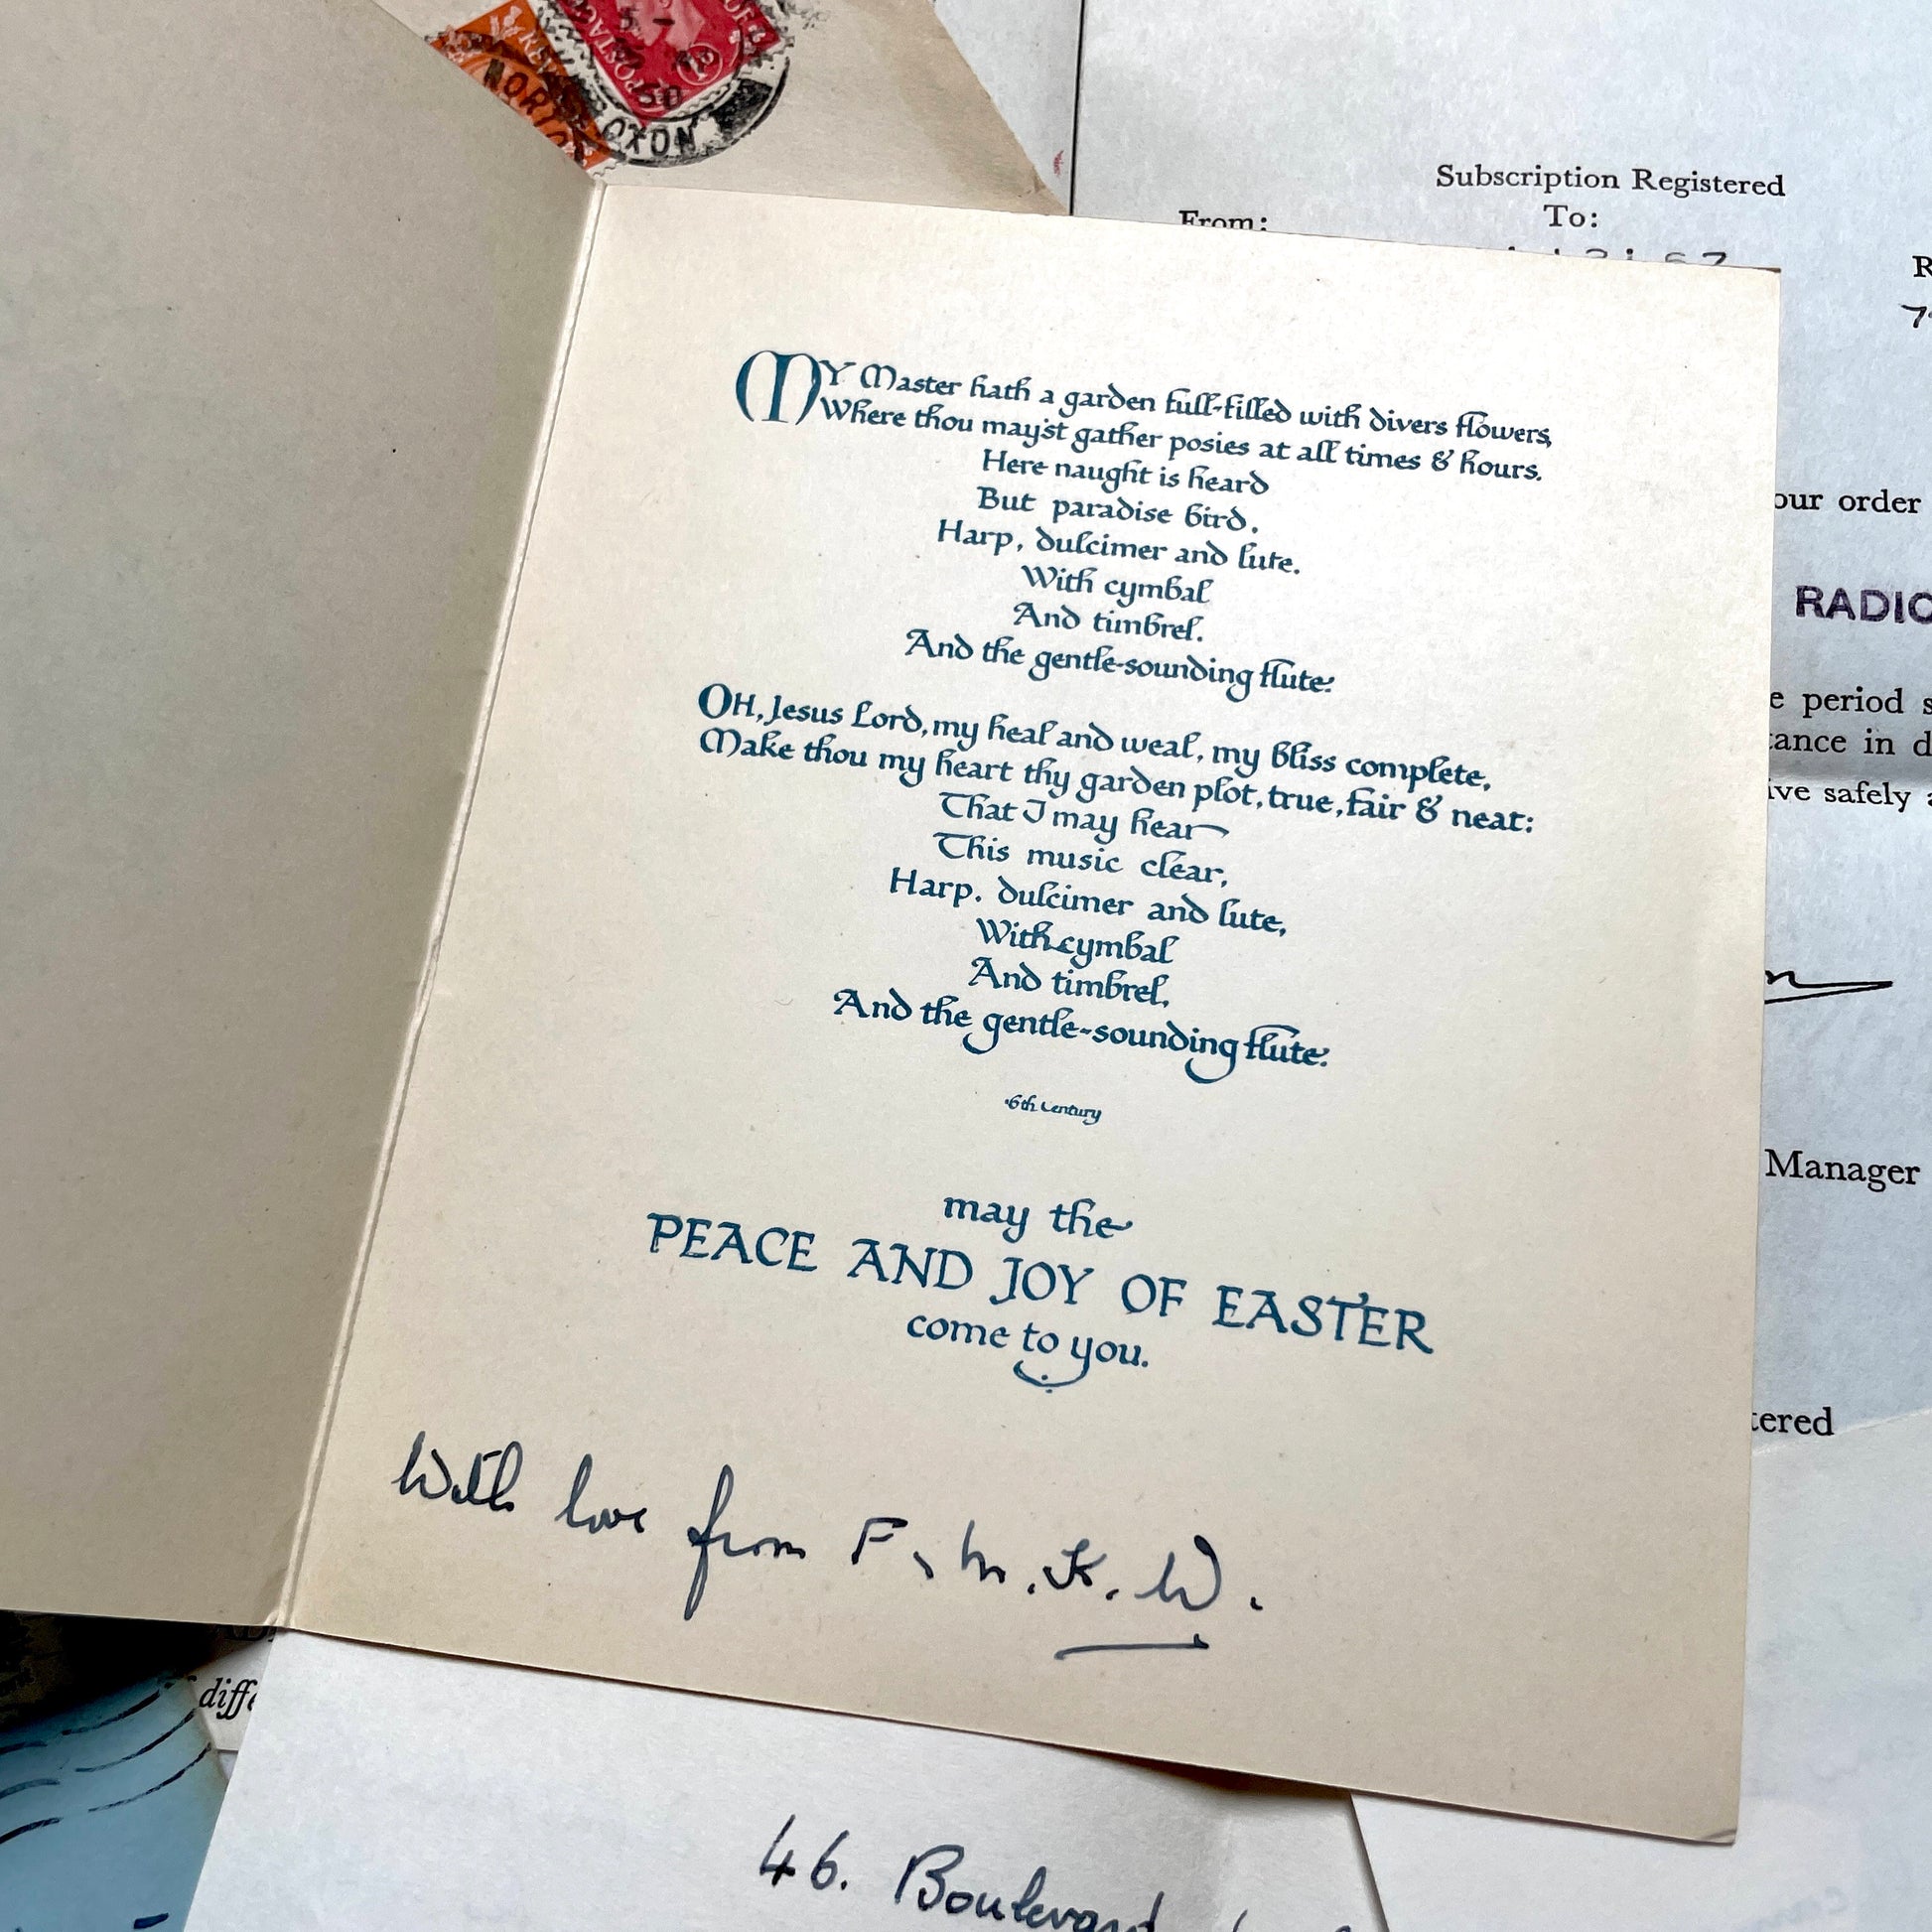 OXON
Subscription Registered
From:
To:
MY Master hath a garden full-filled with divers flowers,
Where thou may'st gather posies at all times & hours.
Here naught is heard
But paradise bird,
Harp, dulcimer and lute.
With cymbal
And timbrel.
And the gentle-sounding flute.
OH, Jesus Lord, my heal and weal, my bliss complete,
Make thou my heart thy garden plot, true, fair & neat:
That I may hear
This music clear,
Harp. dulcimer and lute,
With cymbal
And timbrel,
And the gentle-sounding flute.
16th Century
may the
PEACE AND JOY OF EASTER
come to you.
With love from F. M. K. W.
our order
RADIO
period
tance in
safely
Manager
tered
46. Boulevard